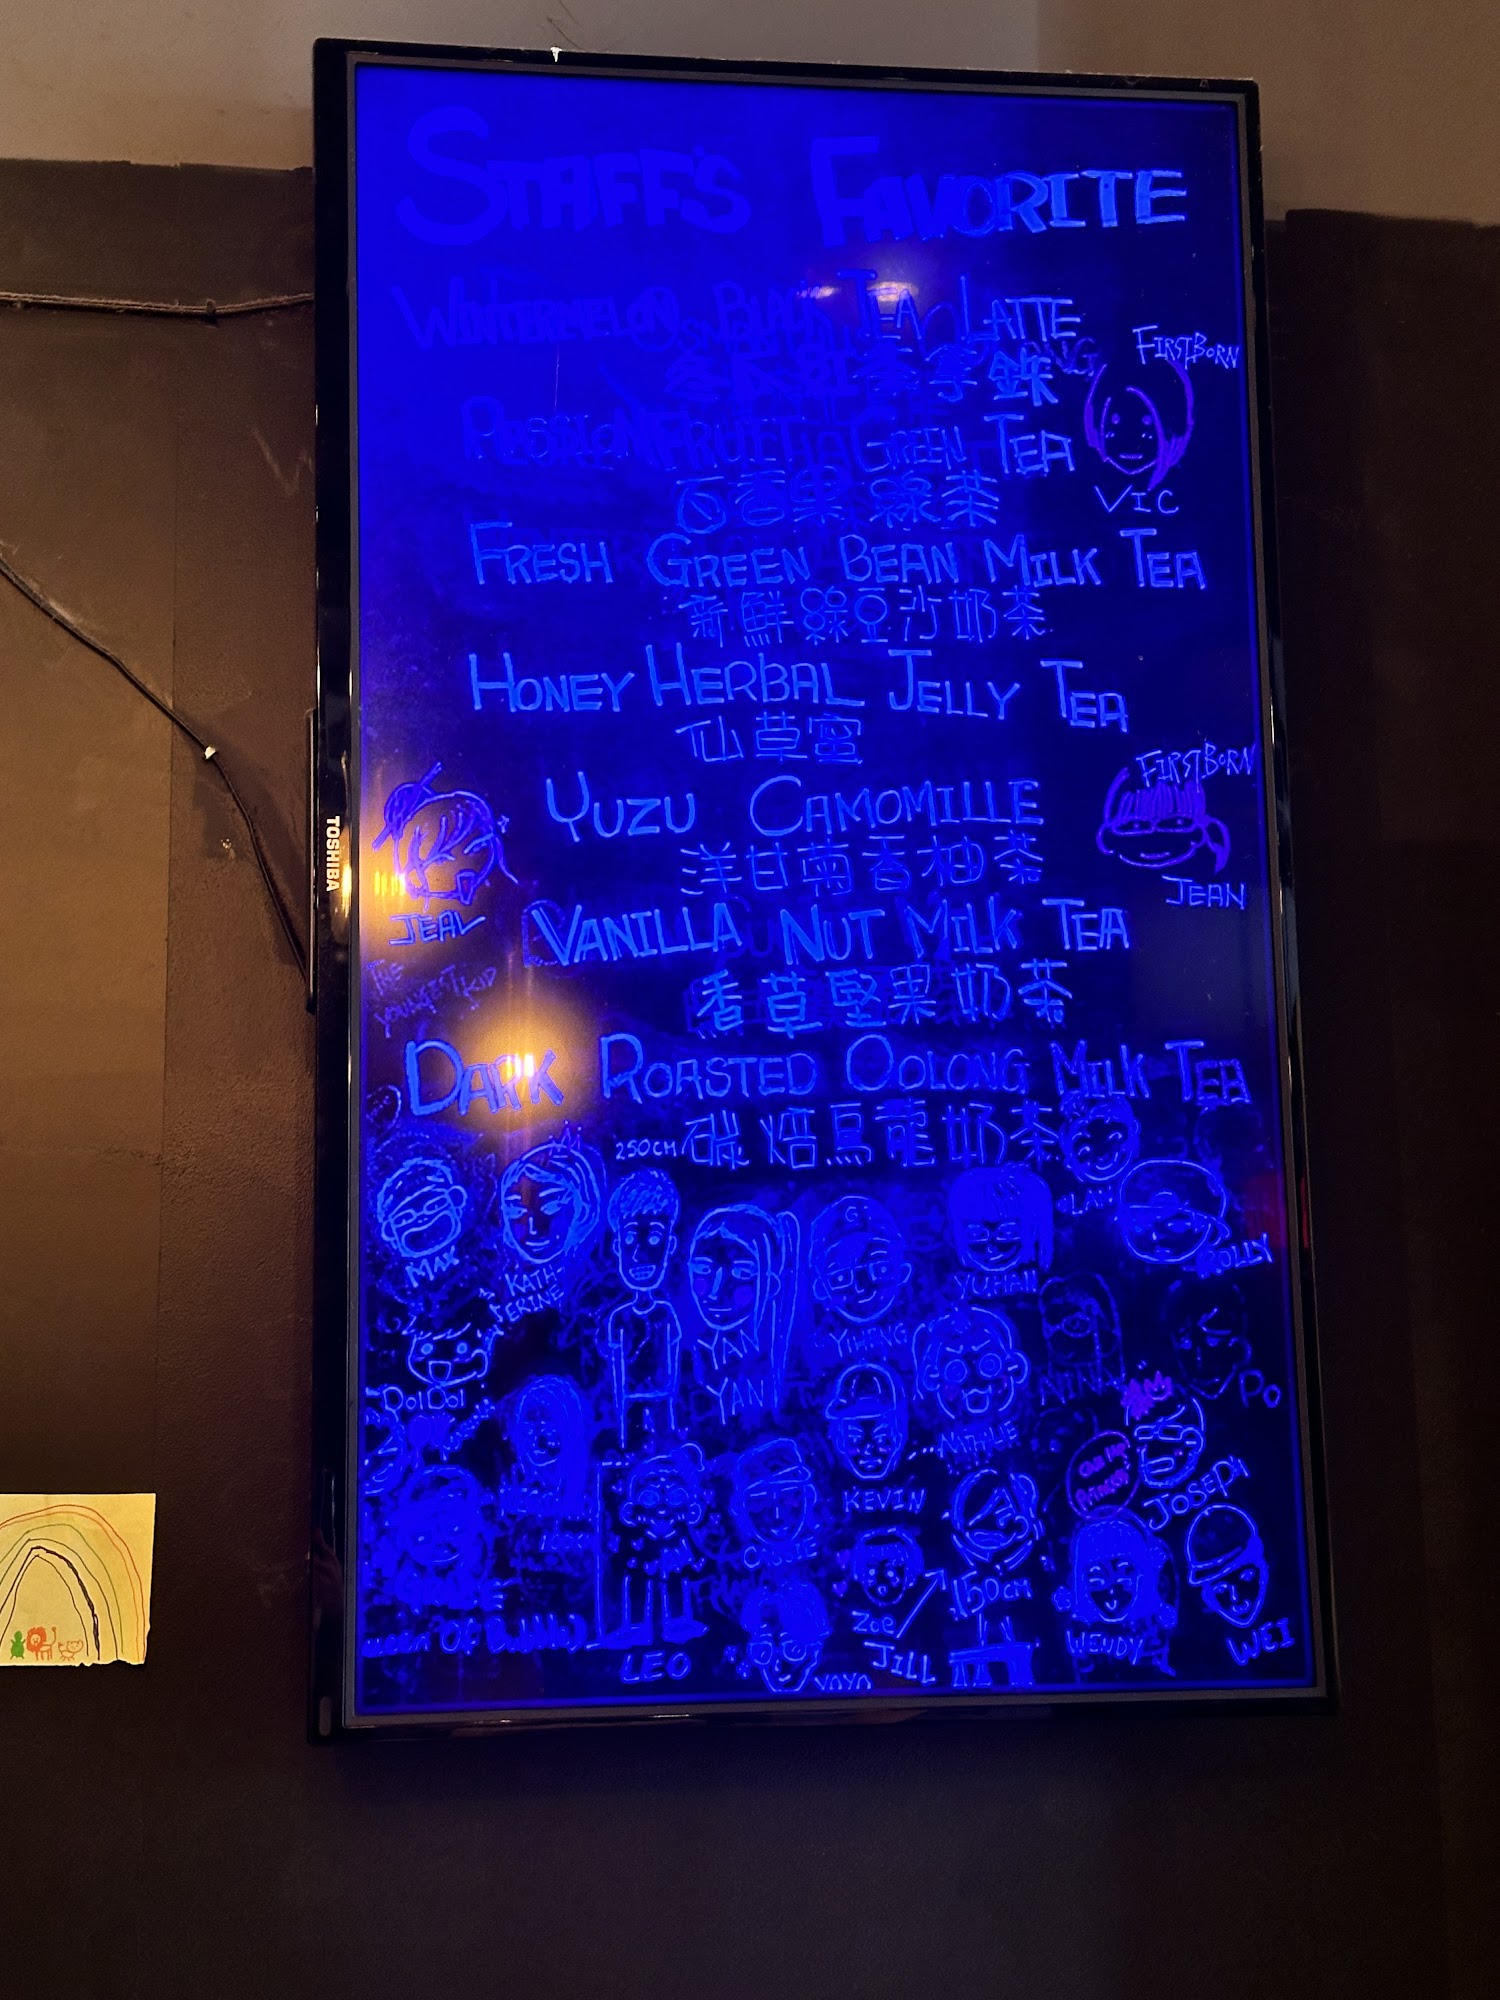 STAFF'S FAVORITE
WINTERMELON BLACK TEA LATTE
冬瓜紅茶拿鐵
FIRSTBORN
VIC
PASSIONFRUIT GREEN TEA
百香果綠茶
FRESH GREEN BEAN MILK TEA
新鮮綠豆沙奶茶
HONEY HERBAL JELLY TEA
仙草蜜
FIRSTBORN
JEAN
YUZU CAMOMILLE
洋甘菊香柚茶
JEAV
THE
YOUNGEST KID
VANILLA NUT MILK TEA
香草堅果奶茶
DARK ROASTED OOLONG MILK TEA
250CM
碳焙烏龍奶茶
MAX
KATH-
ERINE
YAN
YAN
YIHENG
YUHAN
DOIDOI
NINA
PO
KEVIN
JOSEPH
CASSIE
150CM
ZOE
JILL
WENDY
WEI
LEO
YOYO
TOSHIBA